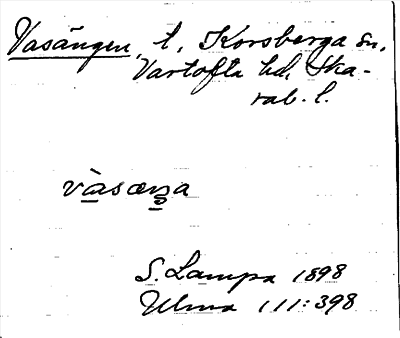 Vasängen, t, Korsberga sn,
Vartofta hd, Ska-
rab. l.
vàsæŋa
S. Lampa 1898
Ulma 111:398